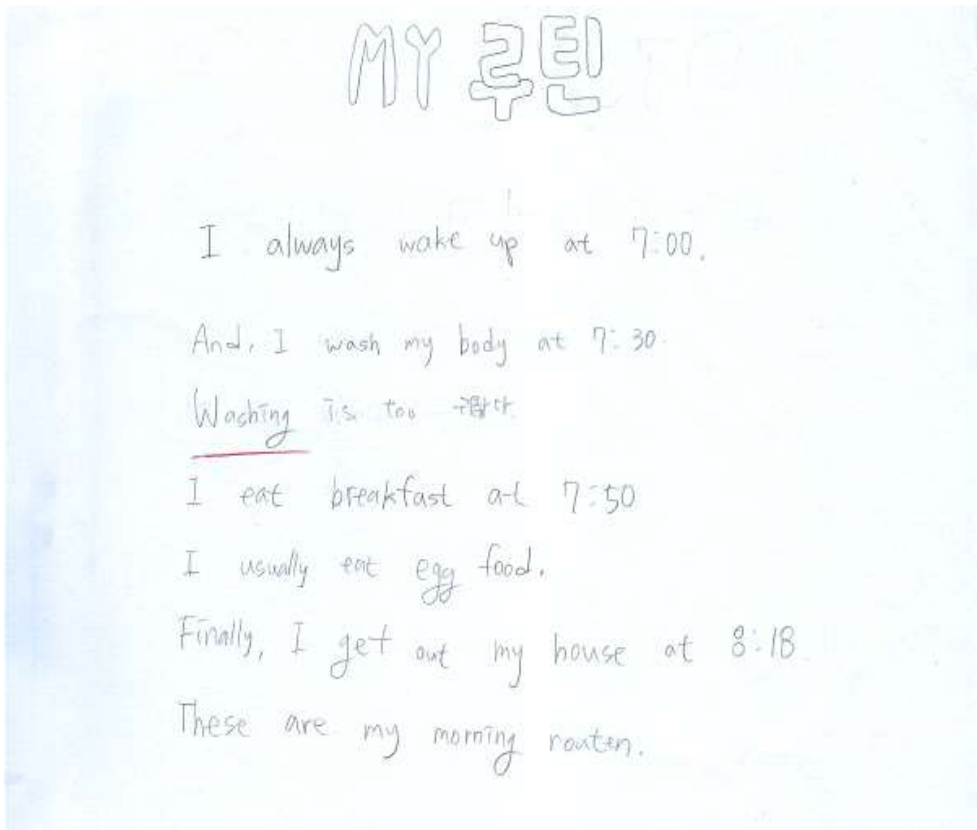 MY 루틴
I always wake up at 7:00.
And, I wash my body at 7:30.
Washing is too 귀찮다
I eat breakfast at 7:50
I usually eat egg food.
Finally, I get out my house at 8:18
These are my morning routen.